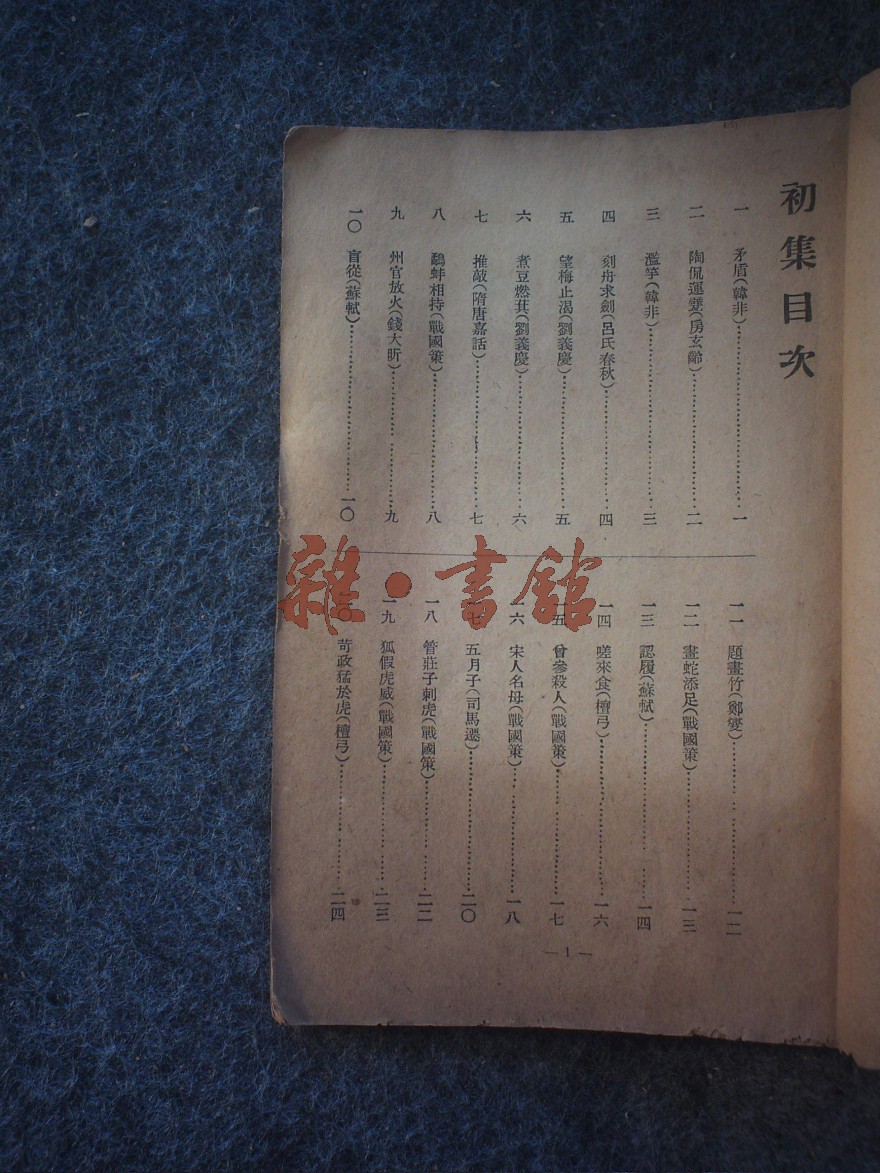 初集目次
一 矛盾(韓非)……一
二 陶侃運甓(房玄齡)……二
三 濫竽(韓非)……三
四 刻舟求劍(呂氏春秋)……四
五 望梅止渴(劉義慶)……五
六 煮豆燃萁(劉義慶)……六
七 推敲(隋唐嘉話)……七
八 鷸蚌相持(戰國策)……八
九 州官放火(錢大昕)……九
一〇 盲從(蘇軾)……一〇
一一 題畫竹(鄭燮)……一二
一二 畫蛇添足(戰國策)……一三
一三 認履(蘇軾)……一四
一四 嗟來食(檀弓)……一六
一五 曾參殺人(戰國策)……一七
一六 宋人名母(戰國策)……一八
一七 五月子(司馬遷)……二〇
一八 管莊子刺虎(戰國策)……二二
一九 狐假虎威(戰國策)……二三
二〇 苛政猛於虎(檀弓)……二四
— 1 —
雜·書館